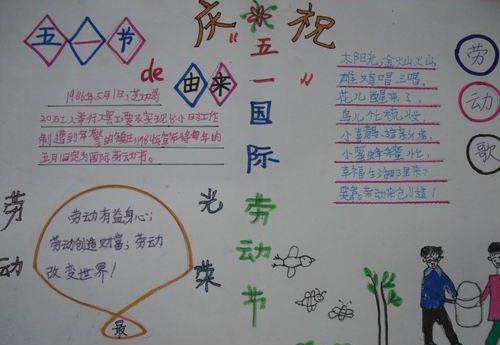 庆祝
"五一国际劳动节"
五一节
de
由来
1986年5月1日,芝加哥
20万工人举行大罢工要求实现8小时工作
制遭到军警的镇压
五月1日定为国际劳动节。
劳动
光荣
最
劳动有益身心;
劳动创造财富;劳动
改变世界!
劳动歌
太阳光,金灿灿,
雄鸡唱三唱,
花儿醒来了,
鸟儿忙梳妆,
小喜鹊
小蜜蜂
幸福生活哪里来?
要靠劳动来创造!